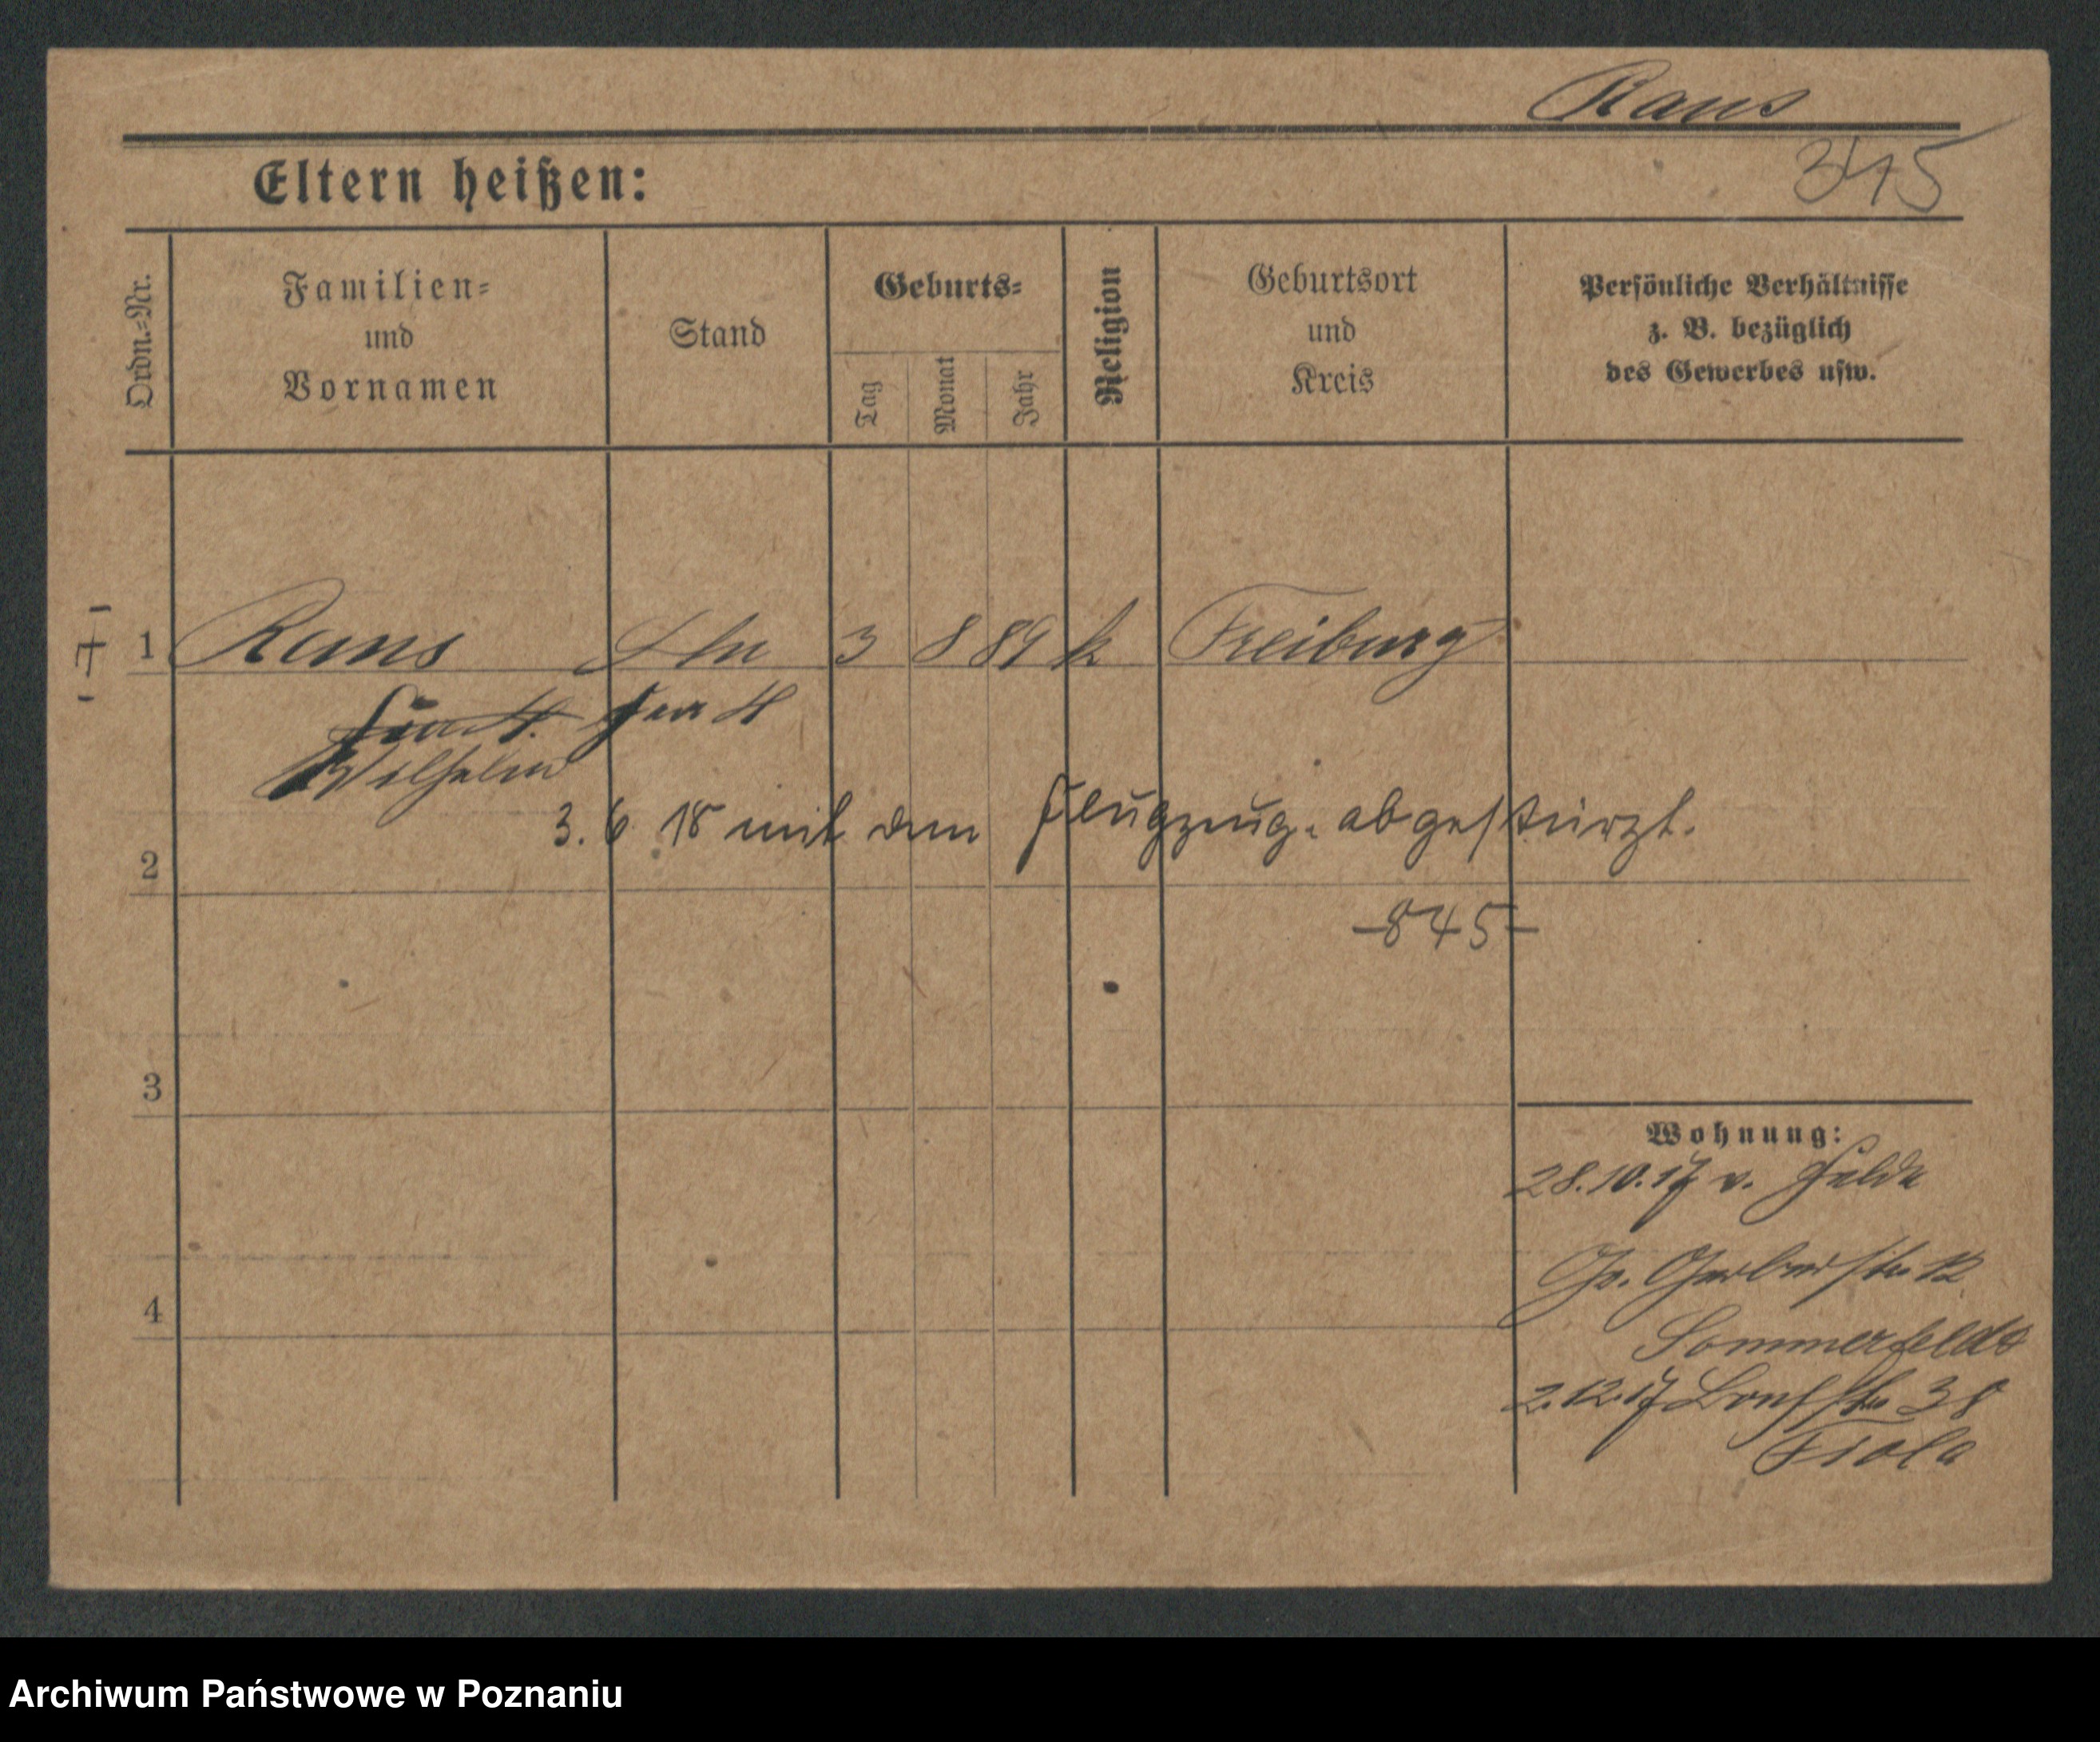 Raus
345
Eltern heißen:
Ordn.-Nr.
Familien- und Vornamen
Stand
Geburts-
Tag
Monat
Jahr
Religion
Geburtsort und Kreis
Persönliche Verhältnisse z. B. bezüglich des Gewerbes usw.
1 Raus 3 8 89 k Freiburg
Wilhelm
3. 6 18 mit dem Flugzeug abgestürzt.
2
-845-
3
Wohnung:
28.10.17 v. Felde
Gr. Gerberstr. 12
Sommerfeldt
4
2.12.17 38